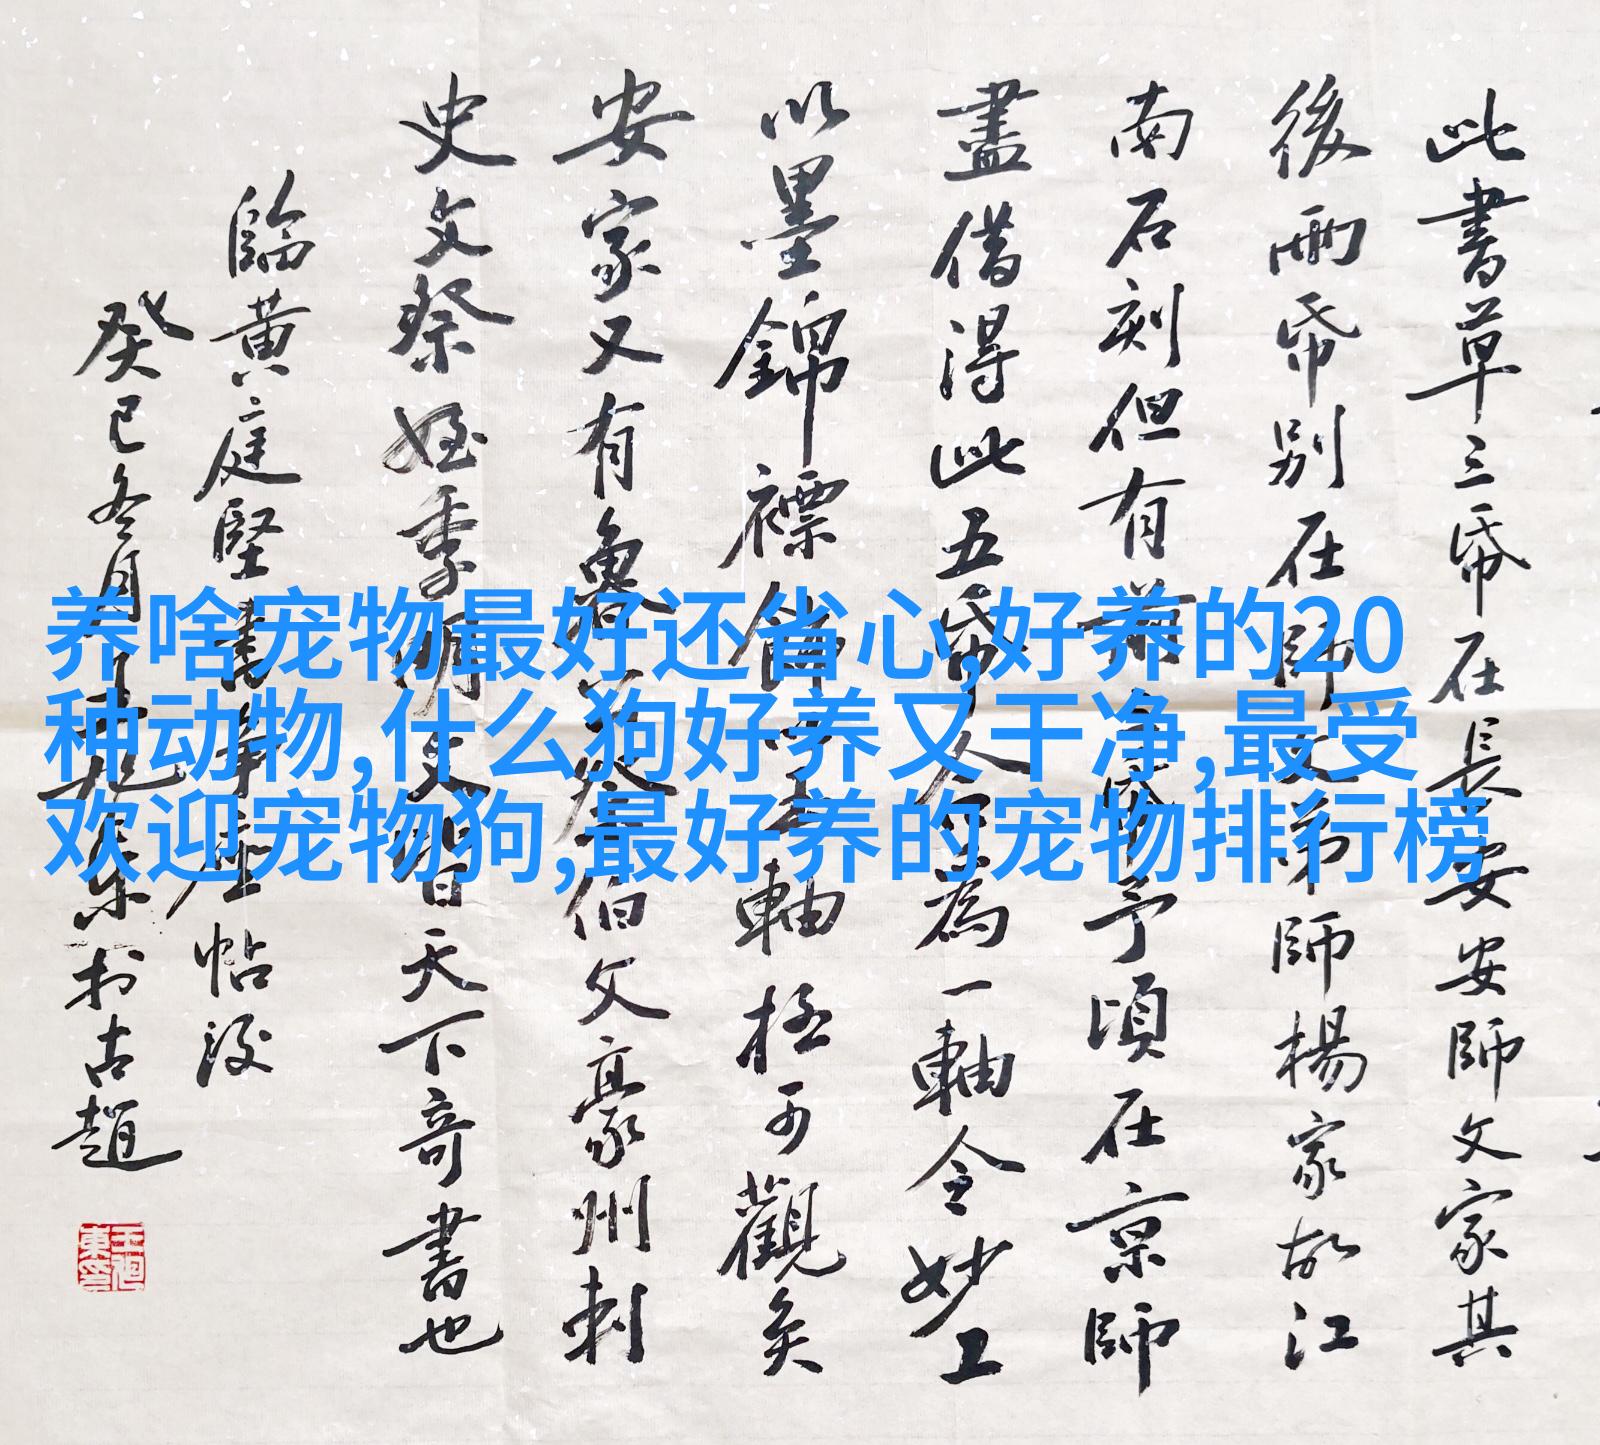 养啥宠物最好还省心,好养的20
种动物,什么狗好养又干净,最受
欢迎宠物狗,最好养的宠物排行榜
此書草三帋在長安安師文家其
後兩帋别在師文弟師楊家故江
南石刻但有前帋予頃在京師
盡借得此五帋合為一軸令妙工
以墨錦褾飾玉軸極可觀矣
安家又有魯公祭伯父豪州刺
史文祭姪季明文皆天下奇書也
臨黄庭堅書争座帖跋
癸巳冬月旭東於古趙